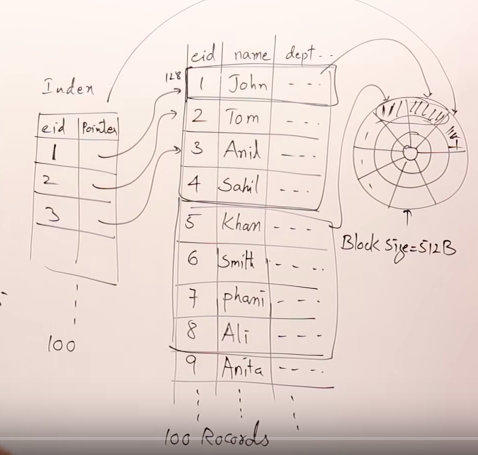 Index
eid Pointer
1
2
3
100
eid name dept..
128
1 John ---
2 Tom ---
3 Anil ---
4 Sahil ---
5 Khan ---
6 Smith ----
7 phani ---
8 Ali ---
9 Anita ----
100 Rocords
Block Size=512B